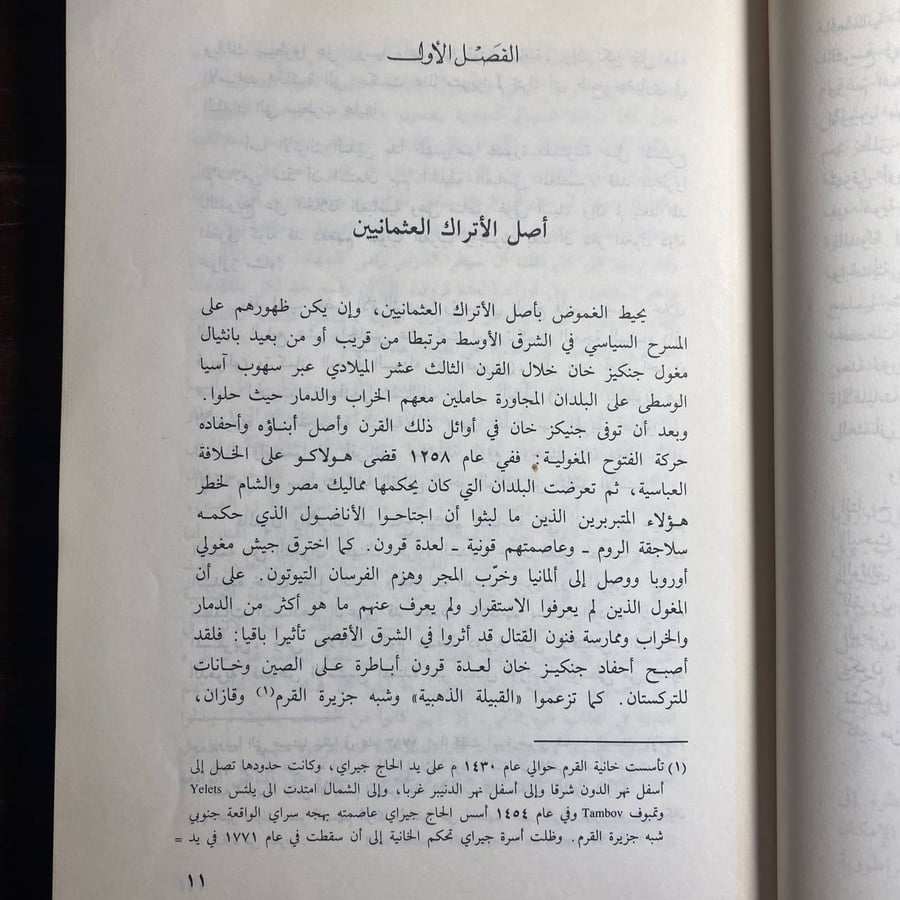 الفصل الأول
أصل الأتراك العثمانيين
يحيط الغموض بأصل الأتراك العثمانيين، وإن يكن ظهورهم على
المسرح السياسي في الشرق الأوسط مرتبطا من قريب أو من بعيد بانثيال
مغول جنكيز خان خلال القرن الثالث عشر الميلادي عبر سهوب آسيا
الوسطى على البلدان المجاورة حاملين معهم الخراب والدمار حيث حلوا.
وبعد أن توفى جنيكز خان في أوائل ذلك القرن وأصل أبناؤه وأحفاده
حركة الفتوح المغولية: ففي عام ١٢٥٨ قضى هولاكو على الخلافة
العباسية، ثم تعرضت البلدان التي كان يحكمها مماليك مصر والشام لخطر
هؤلاء المتبربرين الذين ما لبثوا أن اجتاحوا الأناضول الذي حكمه
سلاجقة الروم - وعاصمتهم قونية - لعدة قرون. كما اخترق جيش مغولي
أوروبا ووصل إلى ألمانيا وخرّب المجر وهزم الفرسان التيوتون. على أن
المغول الذين لم يعرفوا الاستقرار ولم يعرف عنهم ما هو أكثر من الدمار
والخراب وممارسة فنون القتال قد أثروا في الشرق الأقصى تأثيرا باقيا: فلقد
أصبح أحفاد جنكيز خان لعدة قرون أباطرة على الصين وخانات
للتركستان. كما تزعموا «القبيلة الذهبية» وشبه جزيرة القرم(١) وقازان،
(١) تأسست خانية القرم حوالي عام ١٤٣٠ م على يد الحاج جيراي، وكانت حدودها تصل إلى
أسفل نهر الدون شرقا وإلى أسفل نهر الدنيبر غربا، وإلى الشمال امتدت الى يلتس Yelets
وتمبوف Tambov وفي عام ١٤٥٤ أسس الحاج جيراي عاصمته بهجه سراي الواقعة جنوبي
شبه جزيرة القرم. وظلت أسرة جيراي تحكم الخانية إلى أن سقطت في عام ١٧٧١ في يد =
١١